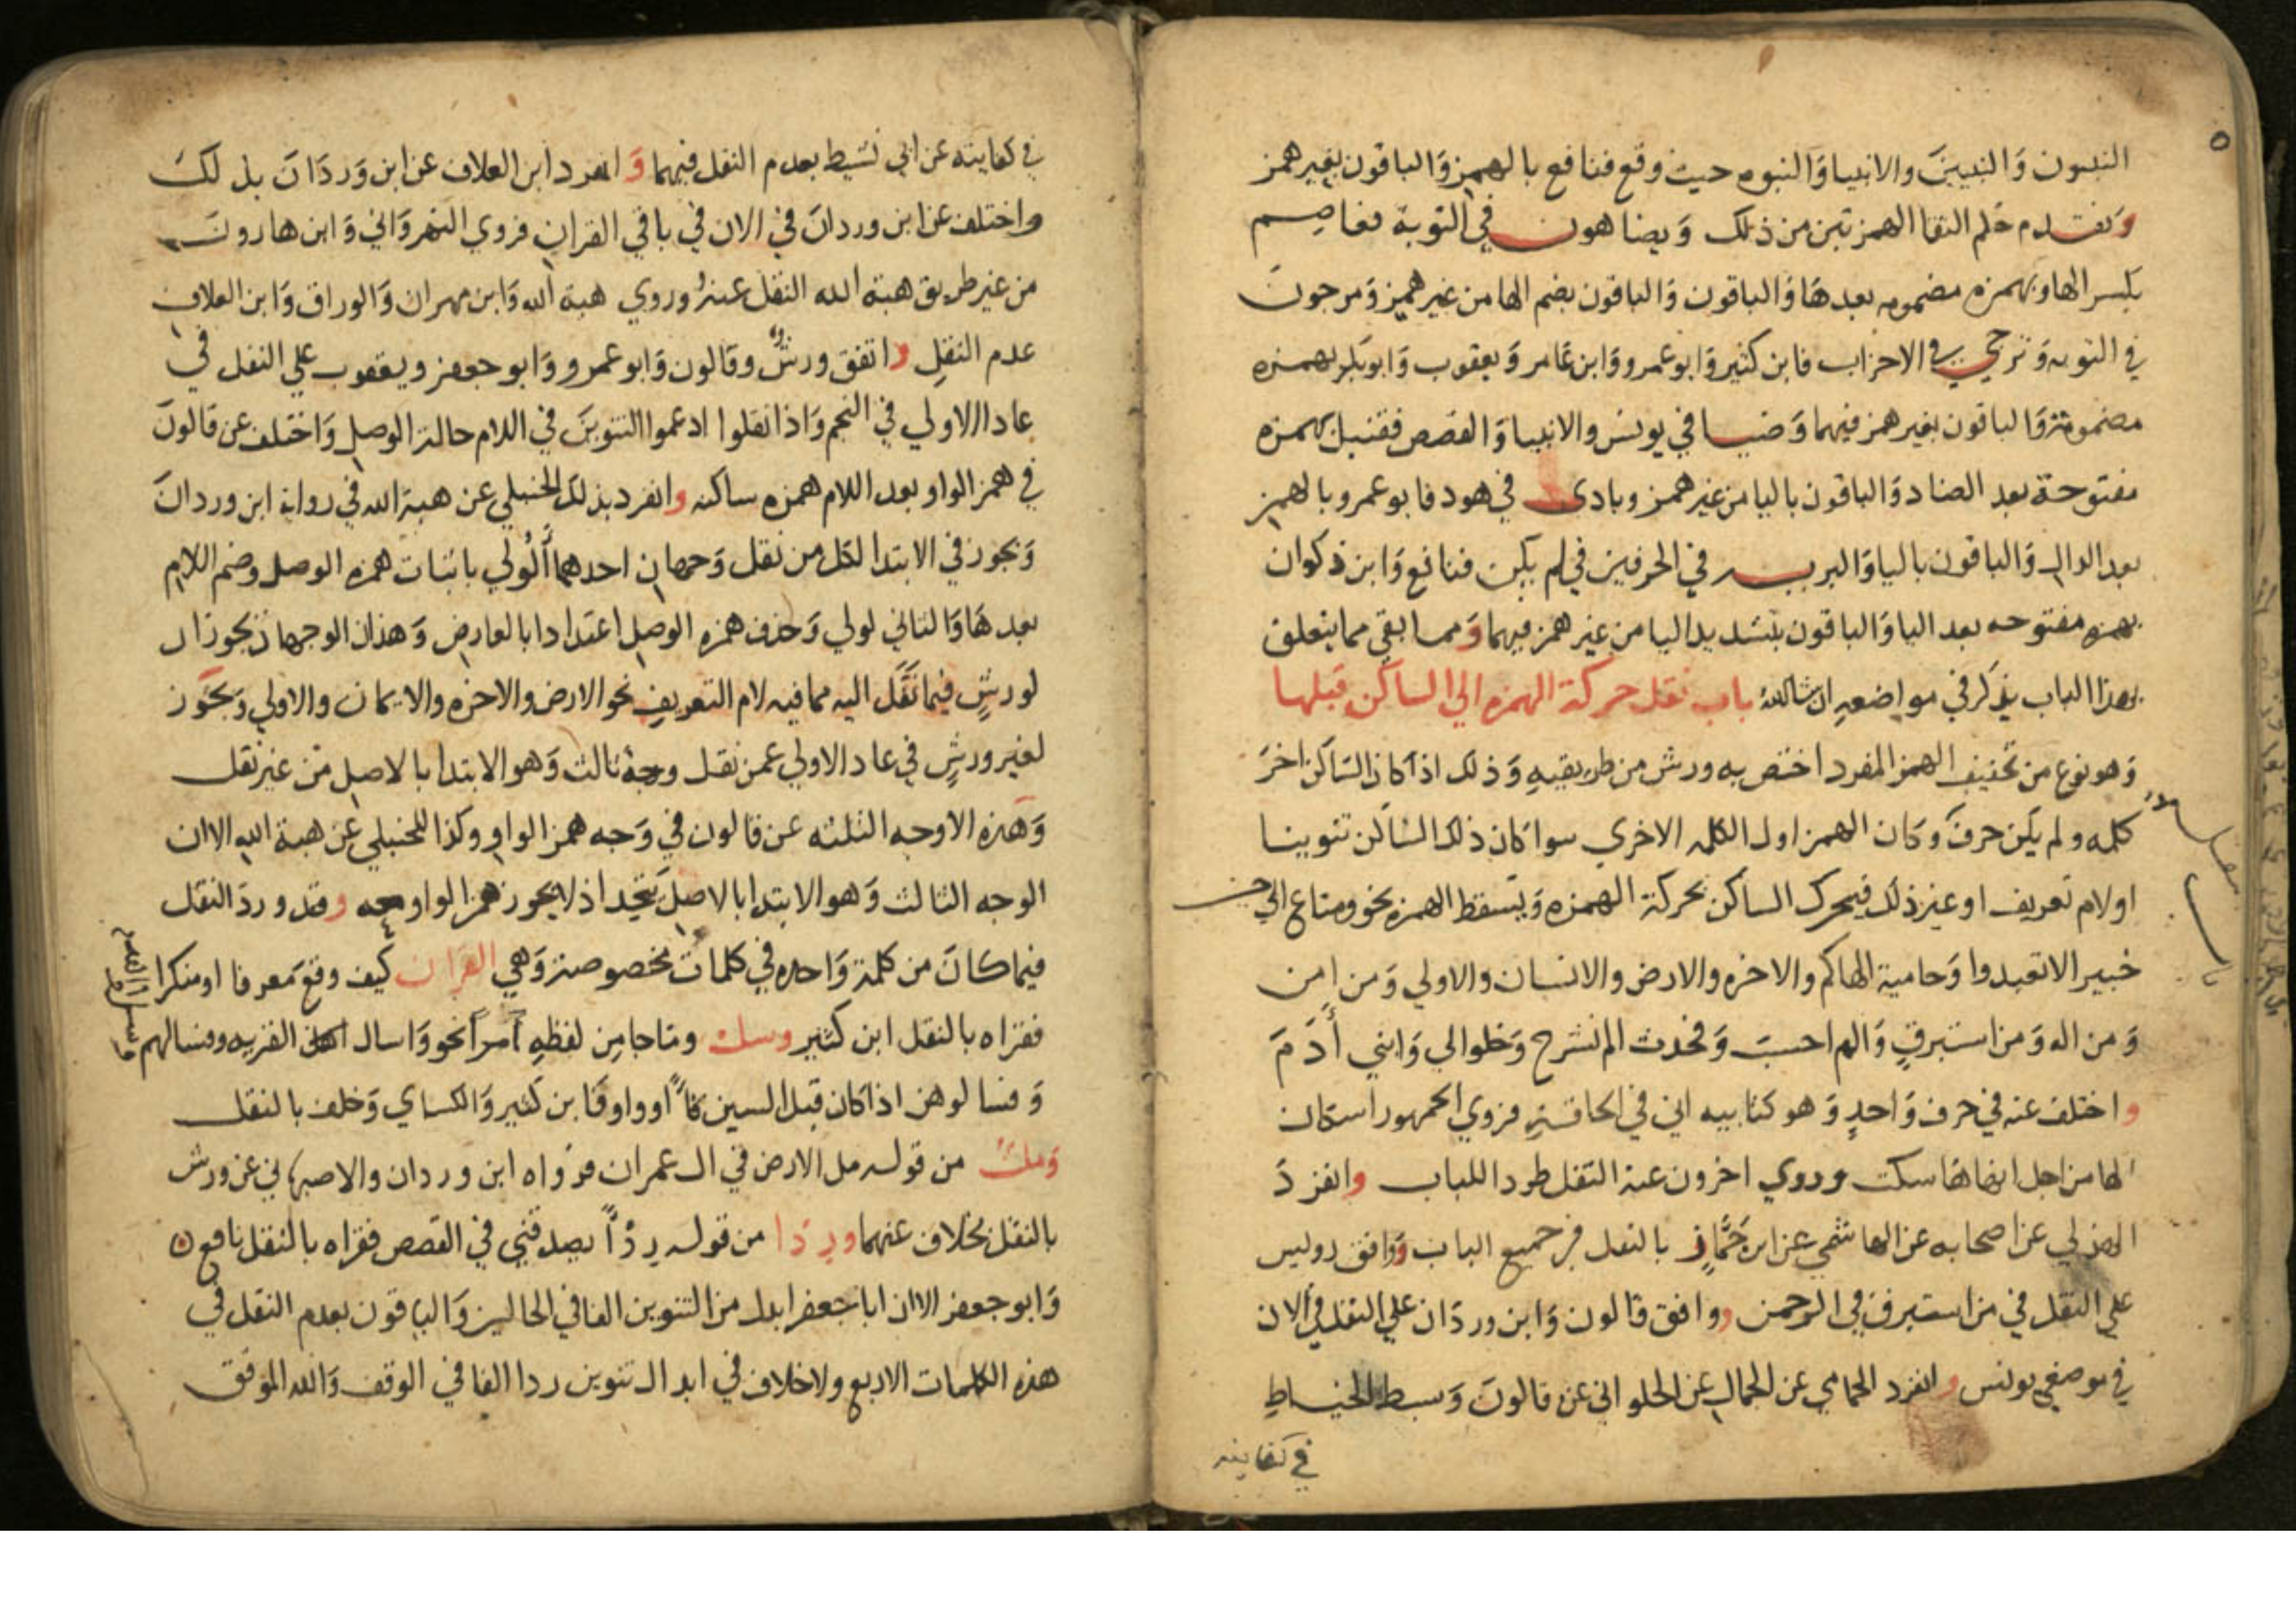 النبيون وَالنبيينَ والانبيا وَالنبوه حيث وقع فنافع بالهمز وَالباقون بغير همز
وَتقدم حكم التقا الهمزتين من ذلك وَيضاهون في التوبة فعاصم
بكسر الها وبهمزه مضمومه بعدهَا وَالباقون بضم الها من غير همز وَمرجونَ
في التوبه وَترجي في الاحزاب فابن كثير وَابو عمرو وَابن عَامر وَيعقوب وَابو بكر بهمزه
مضمومة وَالباقون بغير همز فيهما وَضيا في يونس والانبيا وَالقصص فقنبل بهمزه
مفتوحة بعد الضاد وَالباقون باليا من غير همز وبادى في هود فابو عمرو بالهمز
بعد الدال وَالباقون باليا وَالبريه في الحرفين في لم يكن فنافع وَابن ذكوان
بهمزه مفتوحه بعد اليا وَالباقون بتشديد اليا من غير همز فيهما وَمما بقي مما يتعلق
بهذا الباب يذكر في مواضعهِ ان شا الله باب نقل حركة الهمزه الي الساكن قبلها
وَهو نوع من تخفيف الهمز المفرد اختص به ورش من طريقيهِ وَذلك اذا كان السّاكن اخرَ
كلمه ولم يكن حرفَ وَكان الهمز اول الكلمه الاخري سوا كان ذلك السّاكن تنوينا
او لام تعريف او غير ذلك فيحرك الساكن بحركة الهمزه وَيسقط الهمزه نحو ومتاع الي حين
خبير الا تعبدوا وَحامية الهاكم والاخره والارض والانسان والاولي وَمن امن
وَمن اله وَمن استبرقٍ وَالم احسبَ وَفحدث الم نشرح وَخلوا الي وَابني أَدَمَ
واختلف عنه في حرف وَاحدٍ وَهو كتابيه اني في الحاقة فروي الجمهور اسكان
الها من اجل انها هَا سكت وروي اخرون عنه النقل طردا للباب وانفردَ
الهذلي عن اصحابه عن الهاشمي عن ابن جَمَّاز بالنقل في جميع الباب وَوافق رويس
علي النقل في من استبرق في الرحمن ووافق قالون وَابن وردَان علي النقل في الان
في موضعي يونس وانفرد الحمامي عن الجمال عن الحلواني عن قالونَ وَسبط الخياطِ
في كفايته
في كفايته عن ابي نشيط بعدم النقل فيهما وَانفرد ابن العلاف عن ابن وَردَانَ بذلكَ
واختلف عن ابن وردانَ في الان في باقي القرانِ فروي النهروَاني وَابن هارونَ
من غير طريق هبة الله النقل عنهُ وروي هبة الله وَابن مهران وَالوراق وَابن العلاف
عدم النقلِ واتفق ورشٌ وقالون وَابو عمرو وَابو جعفر ويعقوب علي النقل في
عادا الاولي في النجم وَاذا نقلوا ادغموا التنوينَ في اللام حالة الوصل وَاختلف عن قالونَ
في همز الواو بعد اللام همزه ساكنه وانفرد بذلك الحنبلي عن هبة الله في رواية ابن وردانَ
وَيجوز في الابتدا لكل من نقل وَجهان احدهما أَلُولي باثبات همزه الوصل وضم اللام
بعدهَا وَالثاني لولي وَحذف همزه الوصل اعتدادا بالعارض وَهذان الوجهان يجوزان
لورشٍ فيما نَقَل اليه مما فيه لام التعريفِ نحو الارض والاخره والايمان والاولي وَيجوز
لغير ورشٍ في عاد الاولي عمن نقل وجهٌ ثالث وَهو الابتدا بالاصل من غير نقل
وَهَذه الاوجه الثلثه عن قالون في وَجه همز الواوِ وكذا للحنبلي عن هبة الله الا ان
الوجه الثالث وَهو الابتدا بالاصل يتحد اذ لا يجوز همز الواو معه وقد وردَ النقل
فيما كانَ من كلمة وَاحده في كلمات مخصوصة وَهي القرَان كيف وقعَ مَعرفا او منكرا
فقراه بالنقل ابن كثير وسل ومَا جا مِن لفظهِ امراً نحو وَاسال القريه وفسالهم
وَفسالوهن اذا كان قبل السين فآً او واو فَابن كثير وَالكساي وَخلف بالنقل
وَملءُ من قوله مل الارض في ال عمران فرواه ابن وردان والاصبهاني عن ورش
بالنقل بخلاف عنهما وردَا من قوله رِدْاً يصدقني في القصص فقراه بالنقل نافع
وَابو جعفر الا ان ابا جعفر ابدل من التنوين الفا في الحالين وَالباقون بعدم النقل في
هذه الكلمات الاربع ولا خلاف في ابدال تنوين ردا الفا في الوقف وَالله الموَفق